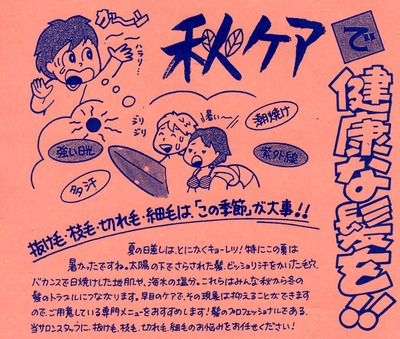 秋ケアで
健康な髪を!!
ガーン
ハラリ…
ジリジリ
暑い〜
潮焼け
強い日光
紫外線
多汗
抜け毛・枝毛・切れ毛・細毛は、「この季節」が大事!!
夏の日差しは、とにかくキョーレツ!特にこの夏は
暑かったですね。太陽の下でさらされた髪、ビッショリ汗をかいた毛穴、
バカンスで日焼けした地肌や、海水の塩分。これらはみんな秋から冬の
髪のトラブルにつながります。早目のケアで、その現象は抑えることができます
ので、ご用意している専門メニューをおすすめします!髪のプロフェッショナルである、
当サロンスタッフに、抜け毛、枝毛、切れ毛、細毛のお悩みをお任せください!